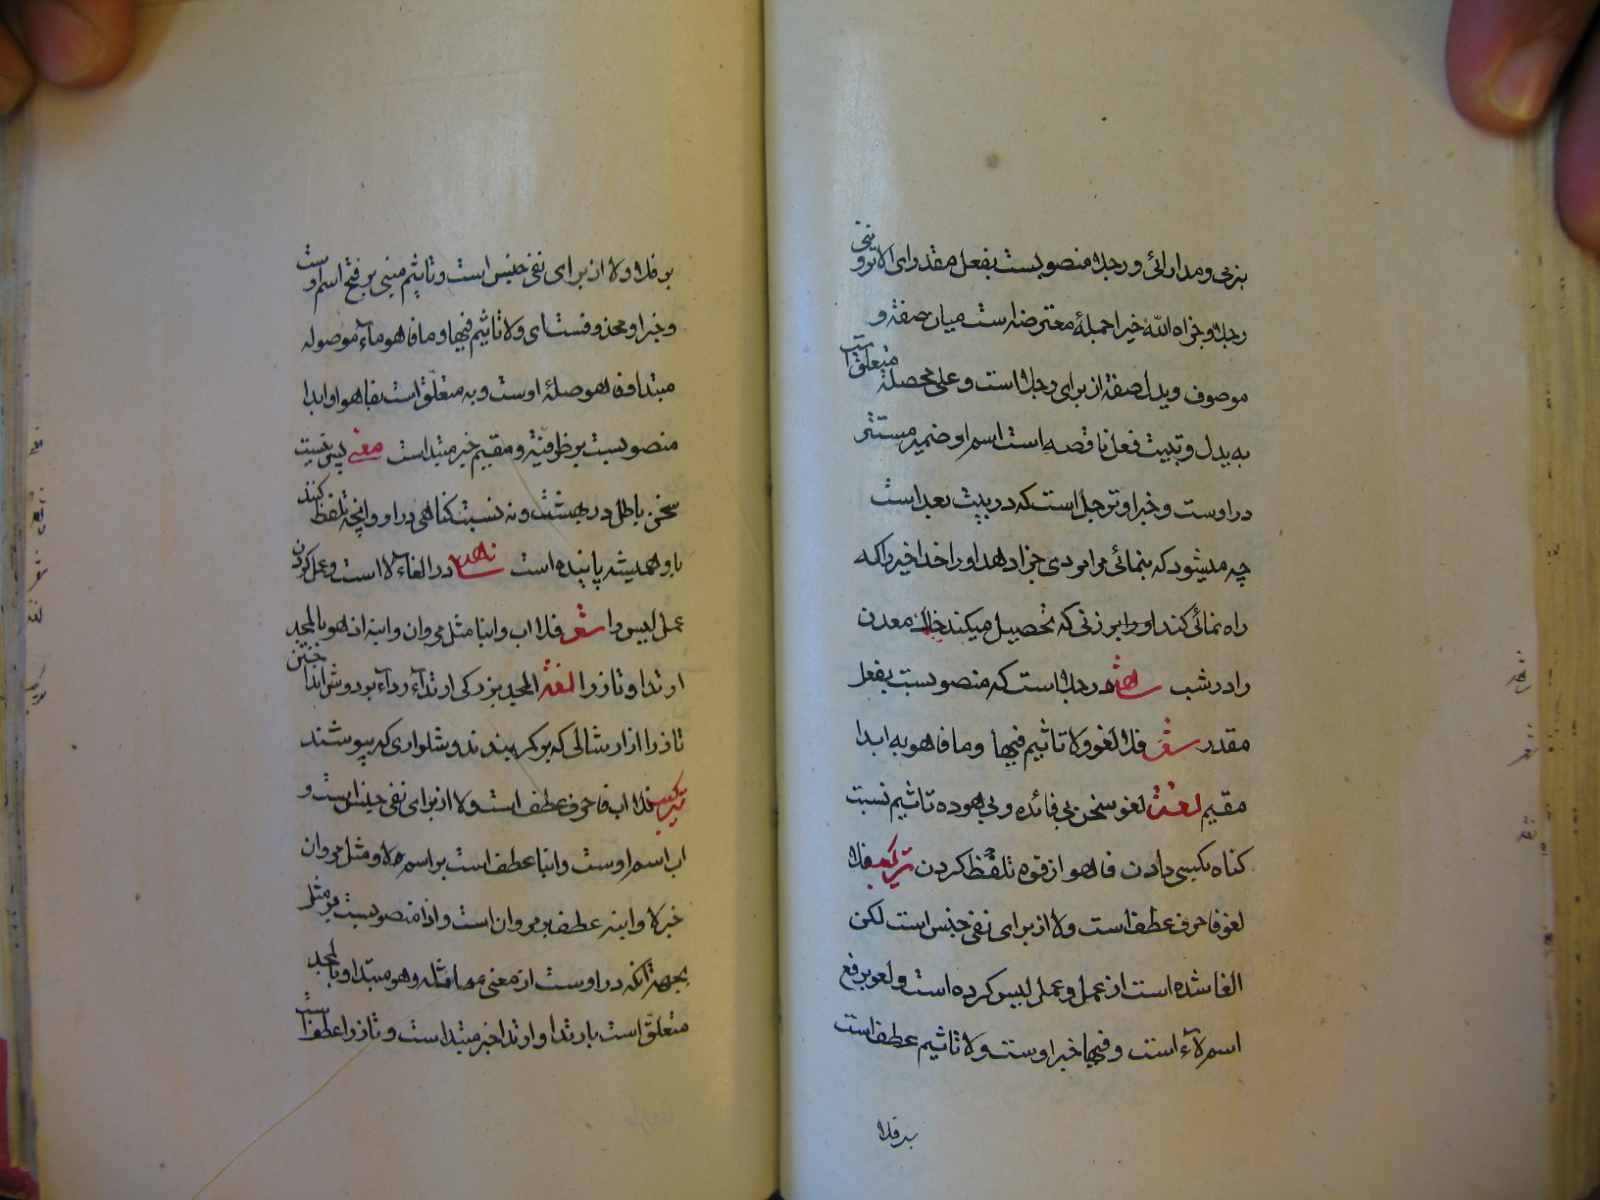 بزنی و مدارائی و رجلا منصوبست بفعل مقدر ای الا تروننی
رجلا و جزاه الله خیرا جملهٔ معترضه است میان صفة و
موصوف و یدل صفة از برای رجلا است و علی محصلة متعلق است
به یدل و تبیت فعل ناقصه است اسم او ضمیر مستتر
در اوست و خبر او ترجل است که در بیت بعد است
چه میشود که بنمائی مرا مردی جزا دهد او را خدا خیر را که
راه نمائی کند او را بر زنی که تحصیل میکند خاك معدن
را در شب شاهد رجلا است که منصوبست بفعل
مقدر شعر فلا لغو ولا تاثیم فیها وما فاهو به ابدا
مقیم لغة لغو سخن بی فائده و بی هوده تاثیم نسبت
کناه بکسی دادن فاهو از فوه تلفظ کردن ترکیب فلا
لغو فا حرف عطف است ولا از برای نفی جنس است لکن
الغا شده است از عمل و عمل لیس کرده است و لغو برفع
اسم لاء است و فیها خبر اوست ولا تاثیم عطف است
بر فلا
بر فلا ولا از برای نفی جنس است و تاثیم مبنی بر فتح اسم اوست
و خبر او محذوفست ای ولا تاثیم فیها وما فاهو ماء موصوله
مبتدا و فاهو صلهٔ اوست و به متعلق است بفاهو او ابدا
منصوبست بر ظرفیة و مقیم خبر مبتدا است معنی پس نیست
سخن باطل در بهشت و نه نسبت کناهی در او و انچه تلفظ کنند
باو همیشه پاینده است شاهد در الغاء لا است و عمل کردن
عمل لیس را شعر فلا اب وابنا مثل مروان وابنه اذ هو بالمجد
ارتدا وتازرا لغة المجد بزرکی ارتداء رداء بر دوش انداختن
تازرا ازار شالی که بر کمر بندند و شلواری که بپوشند
ترکیب فلا اب فا حرف عطف است ولا از برای نفی جنس است و
اب اسم اوست و ابنا عطف است بر اسم لا و مثل مروان
خبر لا و ابنه عطف بر مروان است و اذا منصوبست بر مثل
بجهة آنکه در اوست از معنی مماثله و هو مبتدا و بالمجد
متعلق است بارتدا و ارتدا خبر مبتدا است و تازرا عطف است